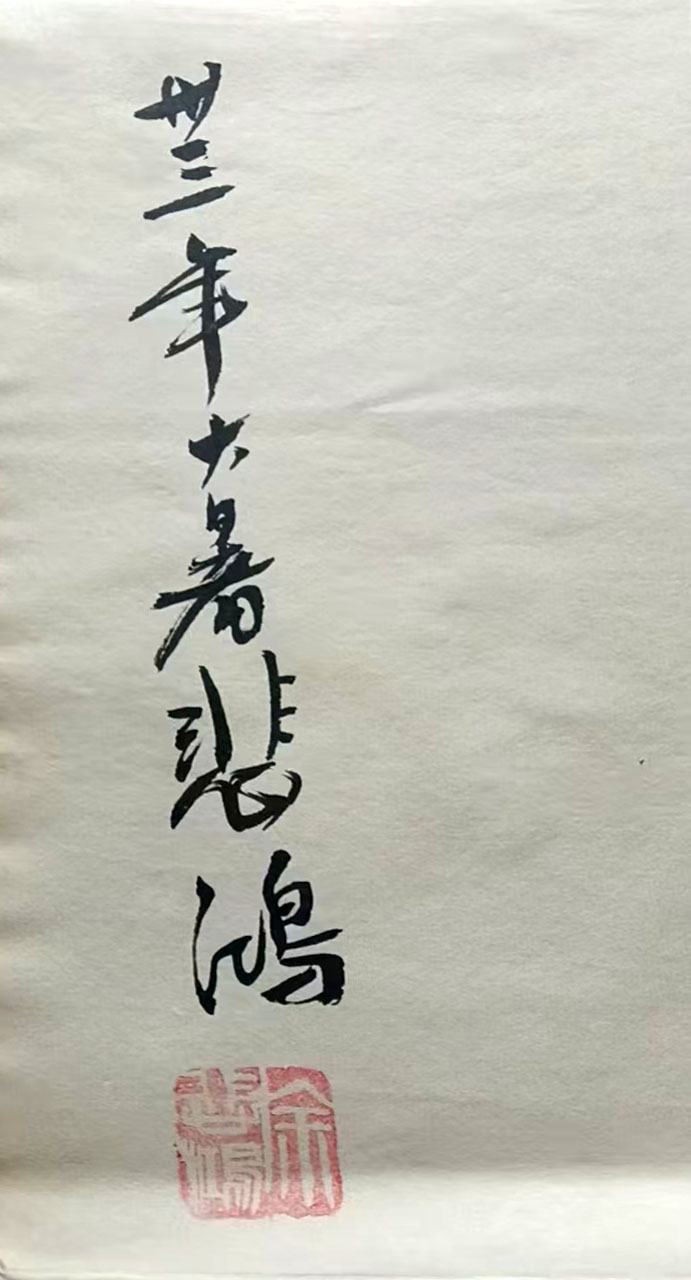 卅三年大暑悲鴻
徐悲鴻